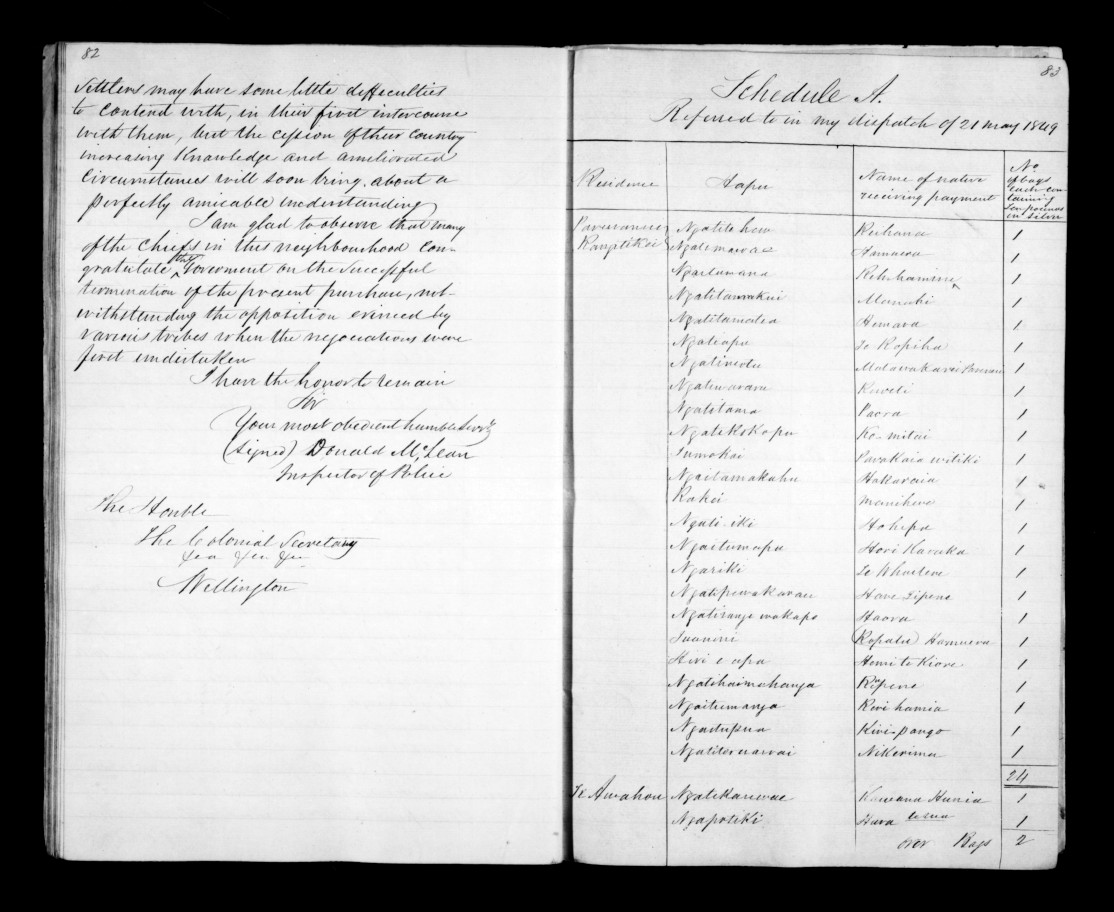 82
Settlers may have some little difficulties
to contend with, in their first intercourse
with them, but the cession of their country
increasing knowledge and ameliorated
circumstances will soon bring about a
perfectly amicable understanding
I am glad to observe that many
of the Chiefs in this neighbourhood con-
gratulate the Goverment on the successful
termination of the present purchase, not-
withstanding the opposition evinced by
various tribes when the negociations were
first undertaken
I have the honor to remain
Sir
Your most obedient humble Servt
(signed) Donald McLean
Inspector of Police
The Honble
The Colonial Secretary
&ca &ca &ca
Wellington
83
Schedule A.
Referred to in my dispatch of 21 May 1849
Residence Hapu Name of native receiving payment No of bags each con-taining ten pounds in silver
Parewanui Ngatitehou Reihana 1
Rangitikei Ngatimaewae Hamuera 1
Ngaitawana 1
Ngatitauwakui Manahi 1
Ngatitamatea Hemara 1
Ngatiapu Te Ropiha 1
Matawakarei 1
Ngatiwarara Kuweti 1
Ngatitama Paora 1
Ngatikokopu Ko-mitai 1
Tumokai Parakaia witiki 1
Ngaitamakahu Hakaraia 1
Kahoi 1
Ngati-iki Hohepa 1
Ngaitumapu Hori Karaka 1
Ngariki 1
Ngatipuwakarau Hare Tipene 1
Ngatirangiwakapo Haora 1
Tuariri (Ropata) Hamuera 1
Hiri e apa Hemi te Kiore 1
Ngatihaimahanga Ropene 1
Ngaitumanga Rewi hamia 1
Ngaitupua Kiripango 1
Nikorima 1
24
Te Awahou Ngatikarewae Kawana Hunia 1
Ngapotiki Hura 1
over Bags 2